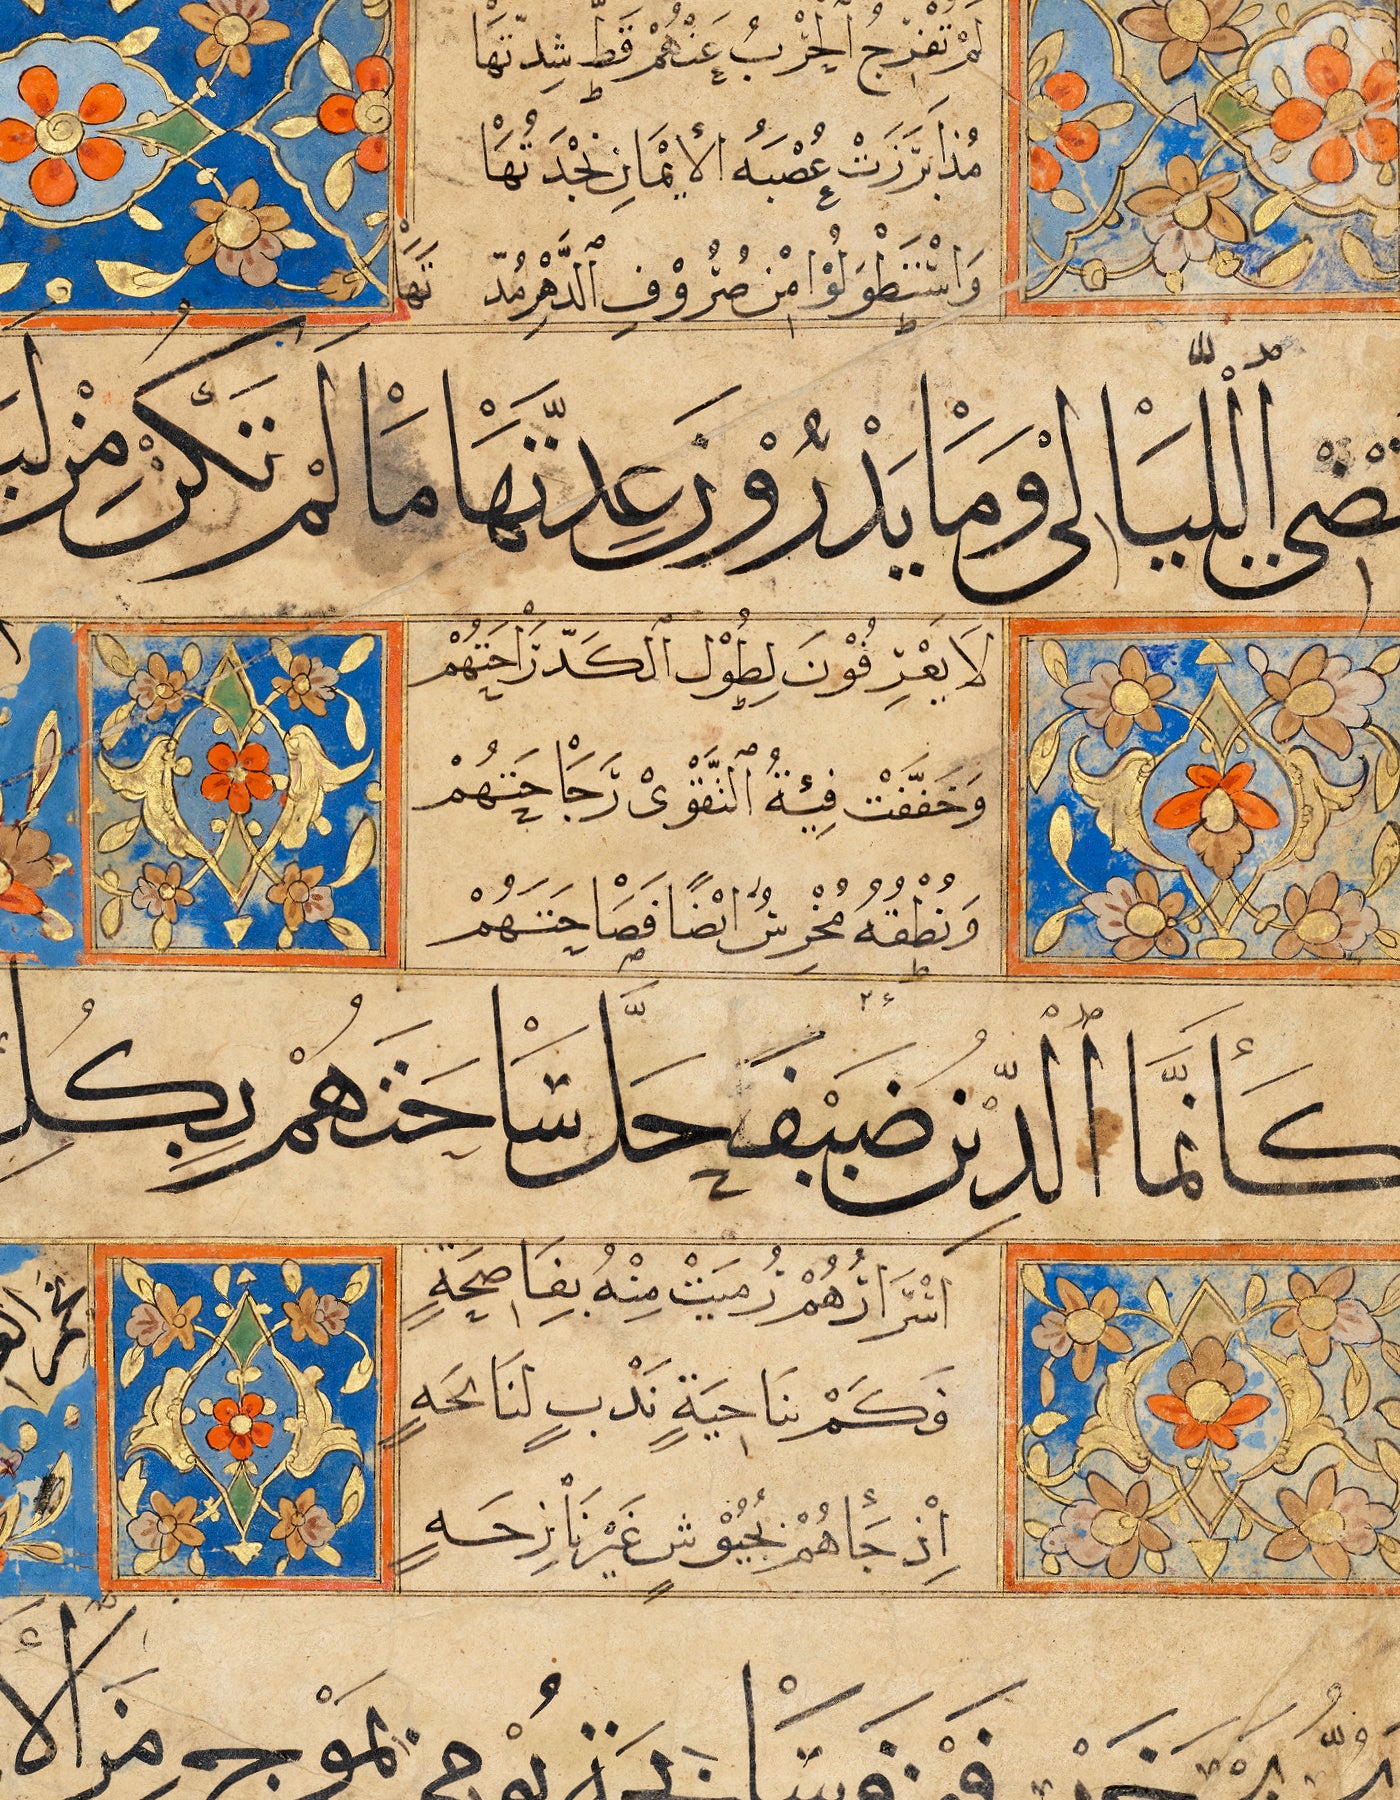 لَمْ تُفْرِجُ ٱلْحَرْبُ عَنْهُمْ قَطُّ شِدَّتَهَا
مُذْ أَبْرَزَتْ عُصْبَةُ الْإِيْمَانِ نَجْدَتَهَا
وَاسْتَنْطَوَلُوْا مِنْ صُرُوْفِ ٱلدَّهْرِ مُدَّتَهَا
تَمْضِي ٱللَّيَالِيْ وَمَا يَدْرُوْنَ عِدَّتَهَا مَا لَمْ تَكُنْ مِنْ
لَا يَعْرِفُوْنَ لِطُوْلِ ٱلْكَدِّ رَاحَتَهُمْ
وَخَفَّفَتْ فِئَةُ ٱلتَّقْوَىْ رَجَاحَتَهُمْ
وَنُطْقُهُ مُخْرِسٌ أَيْضًا فَصَاحَتَهُمْ
كَأَنَّمَا ٱلدِّيْنُ ضَيْفٌ حَلَّ سَاحَتَهُمْ بِكُلِّ
أَسْرَارُهُمْ رُمِيَتْ مِنْهُ بِفَاضِحَةٍ
فَكَمْ بِنَاحِيَةٍ نَدْبٍ لِنَائِحَةٍ
إِذْ جَاءَهُمْ بِجُيُوْشٍ غَيْرِ نَازِحَةٍ
يَجُرُّ بَحْرَ خَمِيْسٍ فَوْقَ سَابِحَةٍ يَرْمِيْ بِمَوْجٍ مِنَ